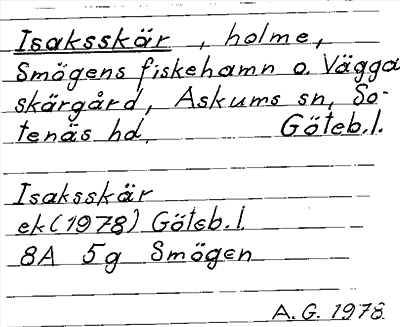 Isaksskär, holme,
Smögens fiskehamn o. Vägga
skärgård, Askums sn, So-
tenäs hd, Göteb. l.
Isaksskär
ek (1978) Göteb. l.
8A 5g Smögen
A. G. 1978